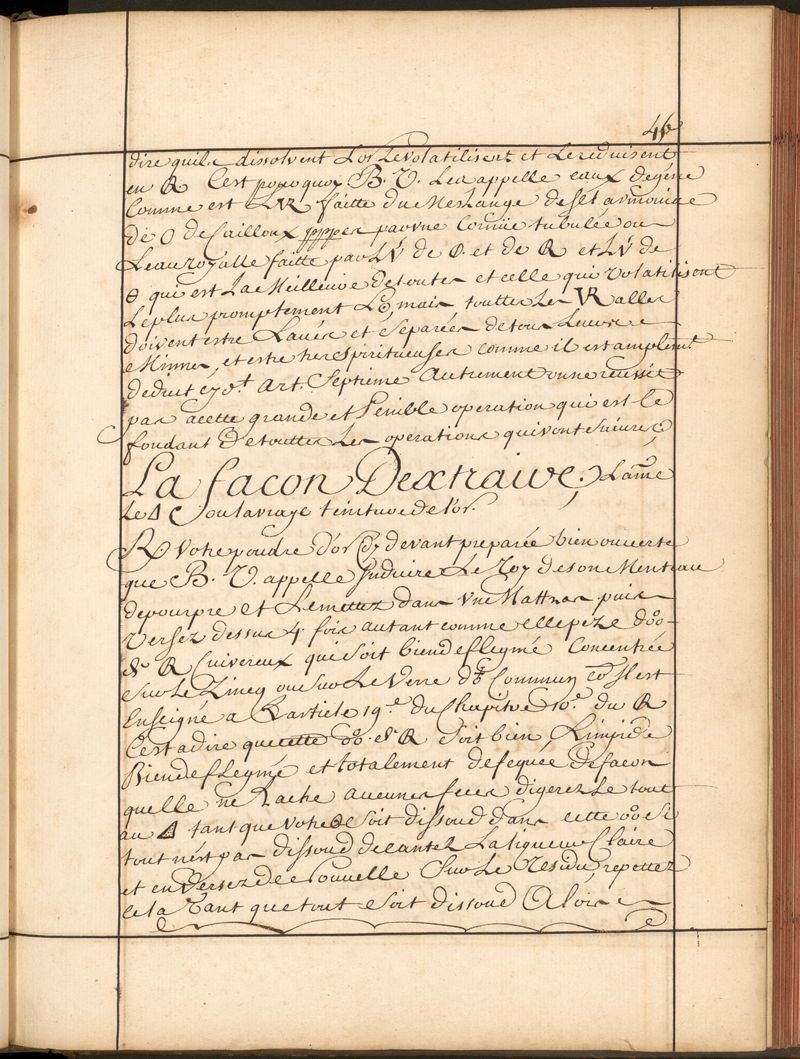 46
dire quile dissolvent Lor Levolatilisent et Lereduisent
en R Cest pourquoy B. V. Les appelle eaux Regene
Comme est L'VR faitte du Meslange desel armoniac
de O de Cailloux par une Cornüe tubulée ou
Leau royalle faitte par L'V de O. et de R et L'V de
O qui est La Meilleure detoutes et celle qui volatilisent
Leplus promptement L mais touttes Les VR alles
doivent estre Lavés et Separées detous Leurs
Minnes, et estre tres spiritueuses comme il est amplemt
dedruit cy dt Art. Septieme Autrement on ne reussit
pas acette grande et Penible operation qui est le
fondant de touttes Les operations qui vont Suivre
La facon Dextraire Lame
Le Δ ou lavraye teinture de l'or.
Votre poudre d'or Cy devant preparée bien ouverte
que B. V. appelle Induire Le Roy deson Menteau
depourpre et Lemettez dans vne Mattras puis
Versez dessus 4 fois autant comme elle peze
R Cuivereux qui soit bien deflegmé Concentrée
Sur Le Zincq ou Sur Le Verre Commun Il est
Enseigné a L'article 19e. du Chapitre 10e. du R
Cest adire que cette R Soit bien Limpide
Bien deflegmé et totalement defequée defacon
quelle ne Lache aucunes feces digerez Le tout
au Δ tant que votre soit dissoud dans cette Si
tout n'est pas dissoud decantez La liqueur Claire
et en Versez de Nouvelle Sur Le Residu, repettez
cela Tant que tout Soit dissoud Alors